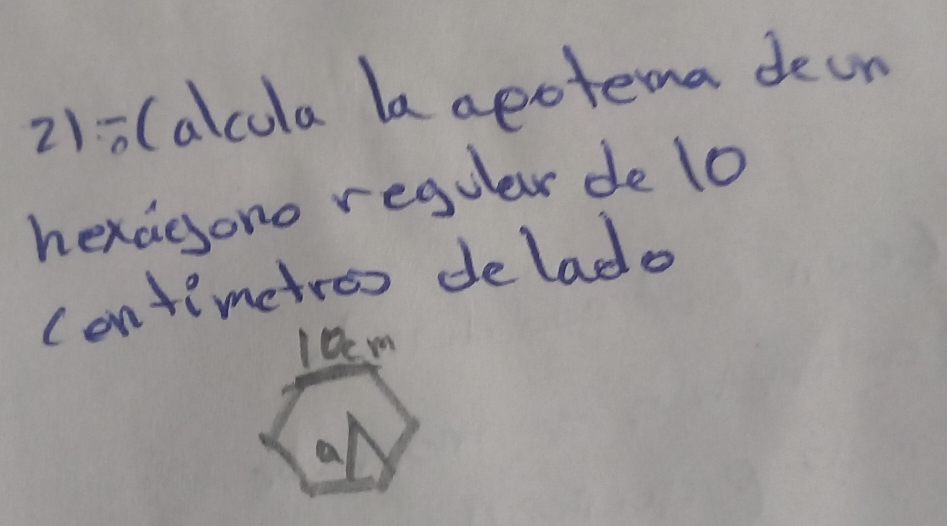 21÷Calcula la apotema de un
hexágono regular de 10
centimetros de lado
10cm
a